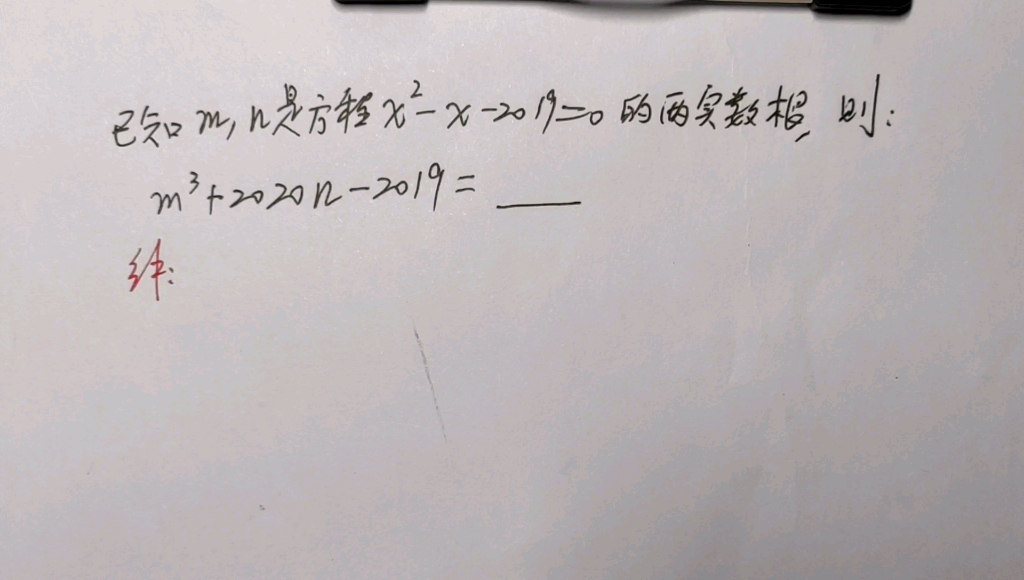 已知 m, n是方程 x²-x-2019=0 的两实数根, 则:
m³+2020n-2019= ___